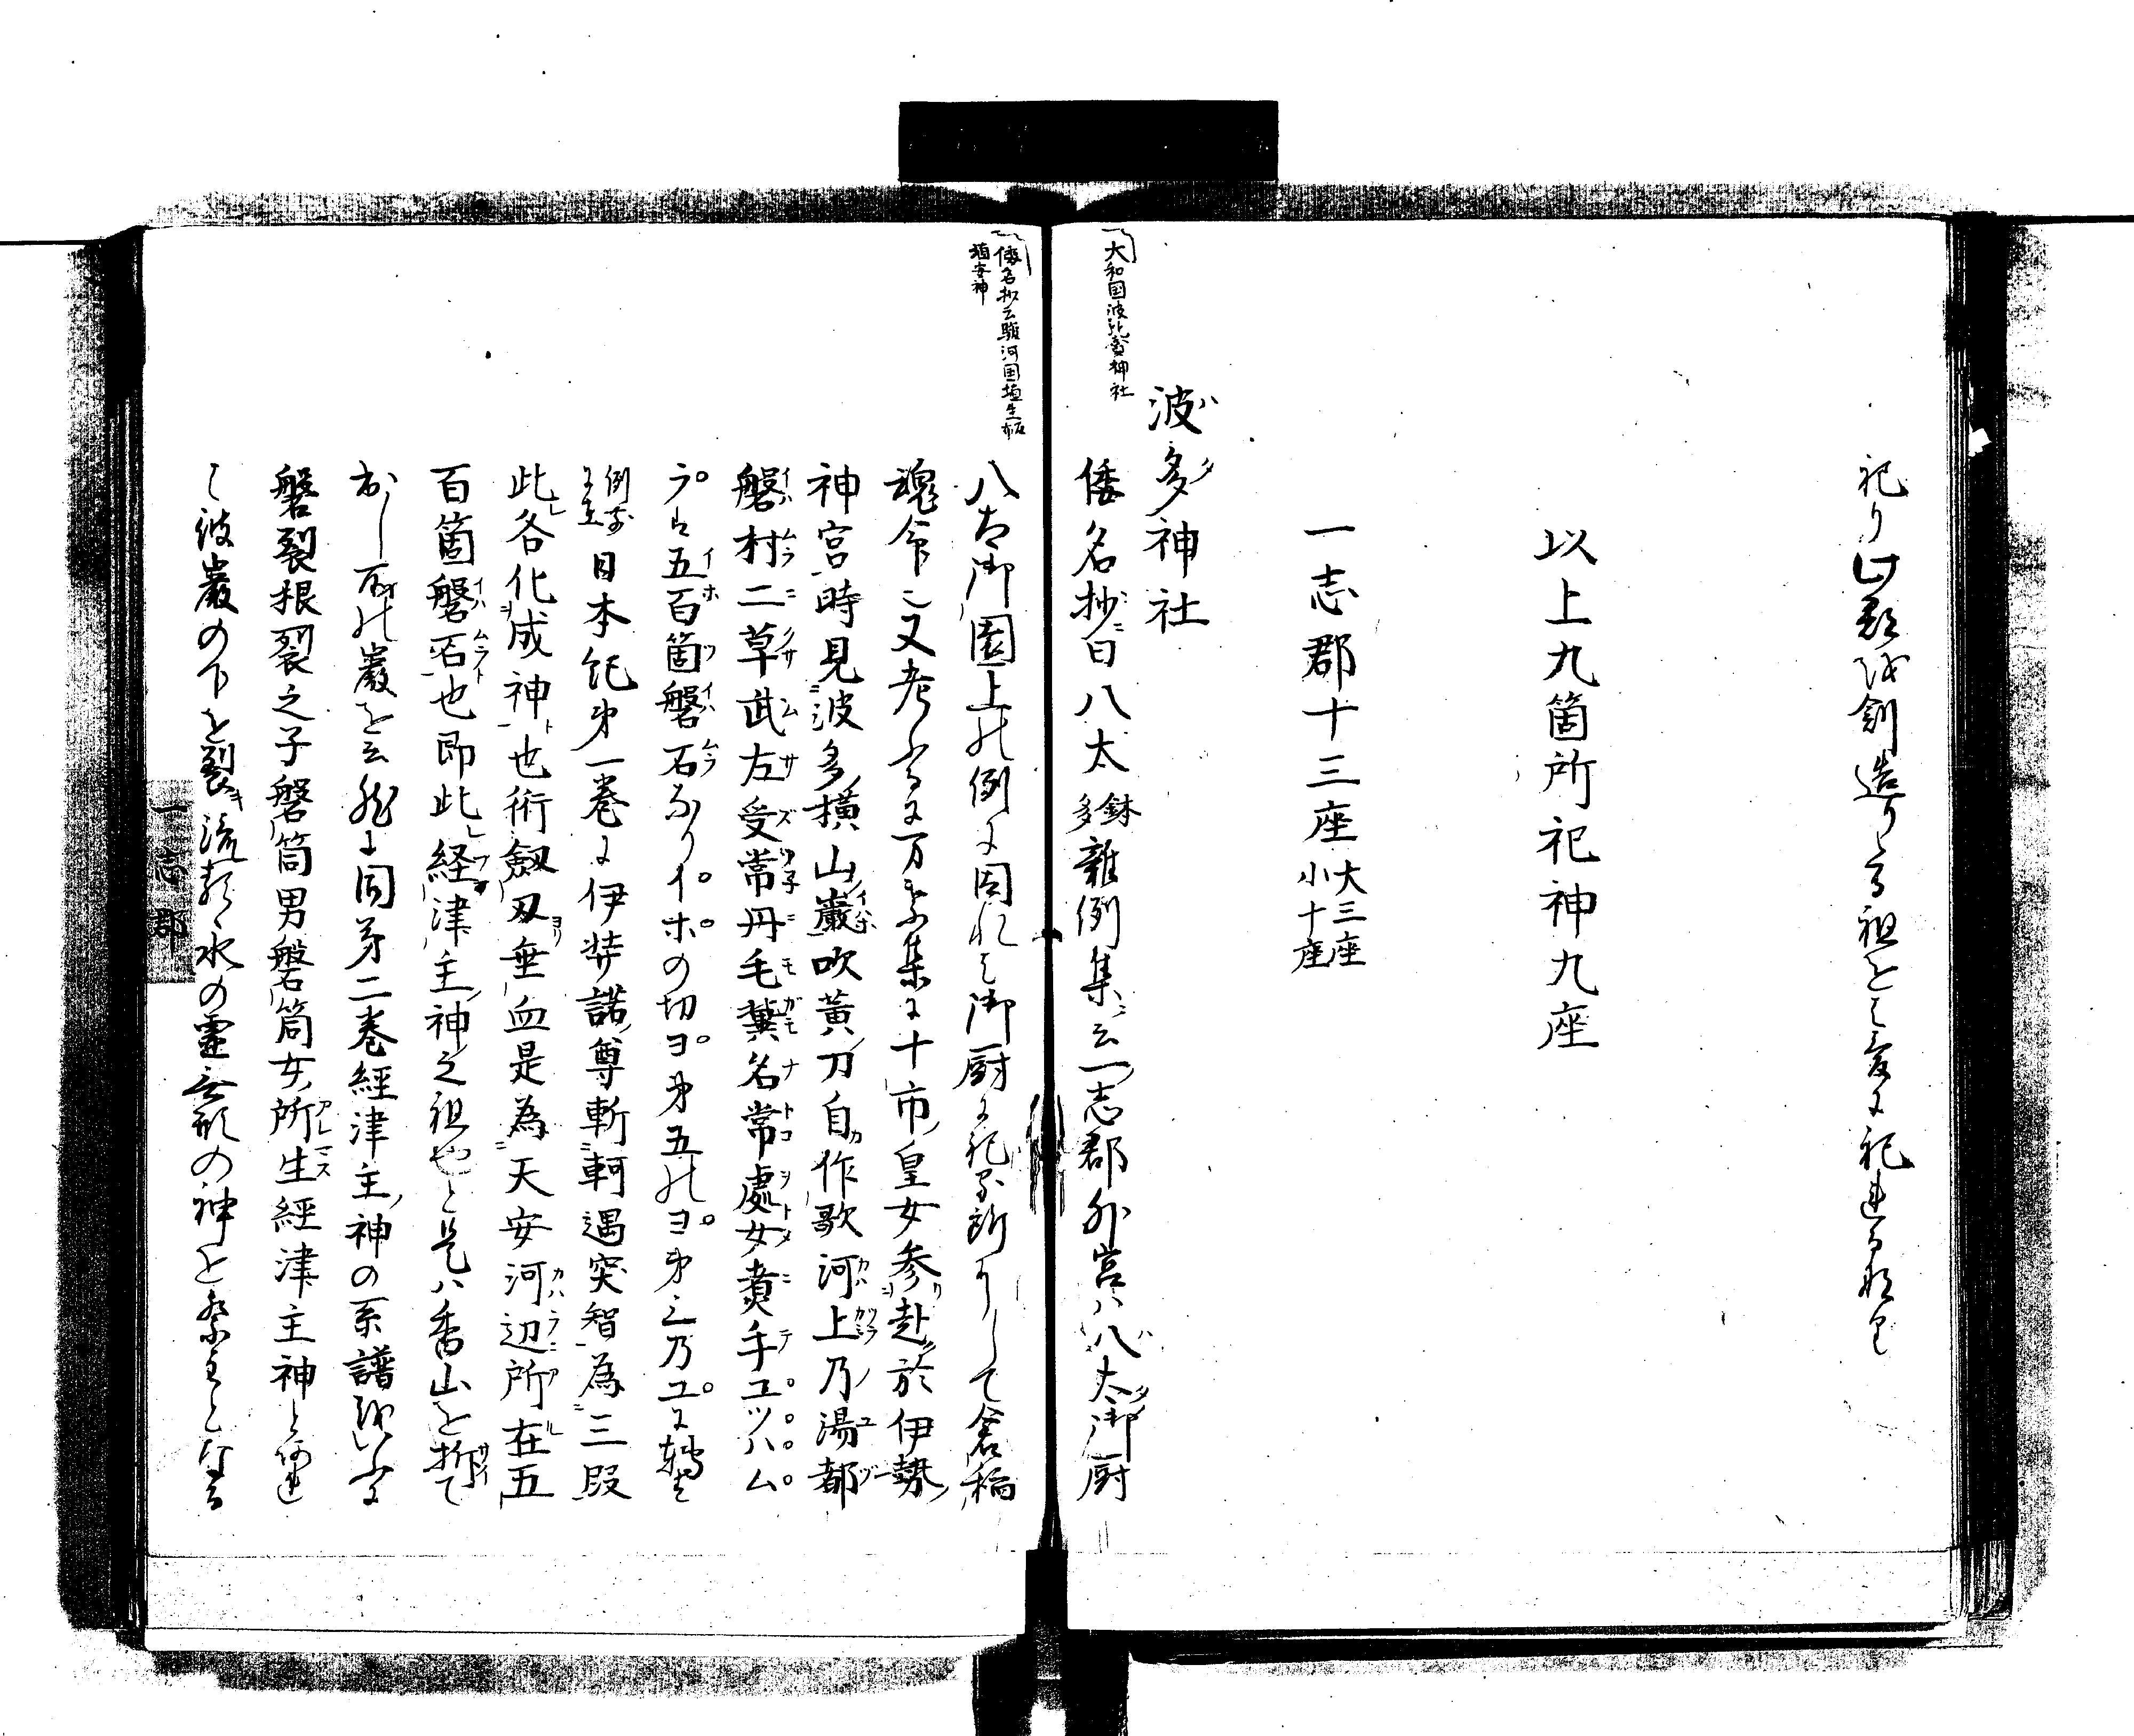 祀り此郡を創造りたる祖をも爰に祀れるなり
以上九箇所祀神九座
一志郡十三座 大三座 小十座
波多神社
大和国波多神社
倭名抄曰八太 鉢多 雑例集云一志郡外宮八太御厨
倭名抄云駿河国埴生
埴安神
八太御園上の例に因れは御厨に祀る所にして倉稲
魂命也又考ふるに万葉集に十市皇女参赴於伊勢
神宮時見波多横山巌吹黄刀自作歌河上乃湯都
磐村二草武左受常丹毛冀名常處女煮手ユツハム
ラは五百箇磐石なりイホの切ヨ第五のヨ第三乃ユに転る
例 日本紀第一巻に伊弉諾尊斬軻遇突智為三段
此各化成神也 劔刃垂血是為天安河辺所在五
百箇磐石也即此経津主神之祖也と是ハ香山を拆て
の巌を云 同第二巻經津主神の系譜をいふに
磐裂根裂之子磐筒男磐筒女所生經津主神と
彼巌の下を裂 流 水の霊 の神を祭
一志郡